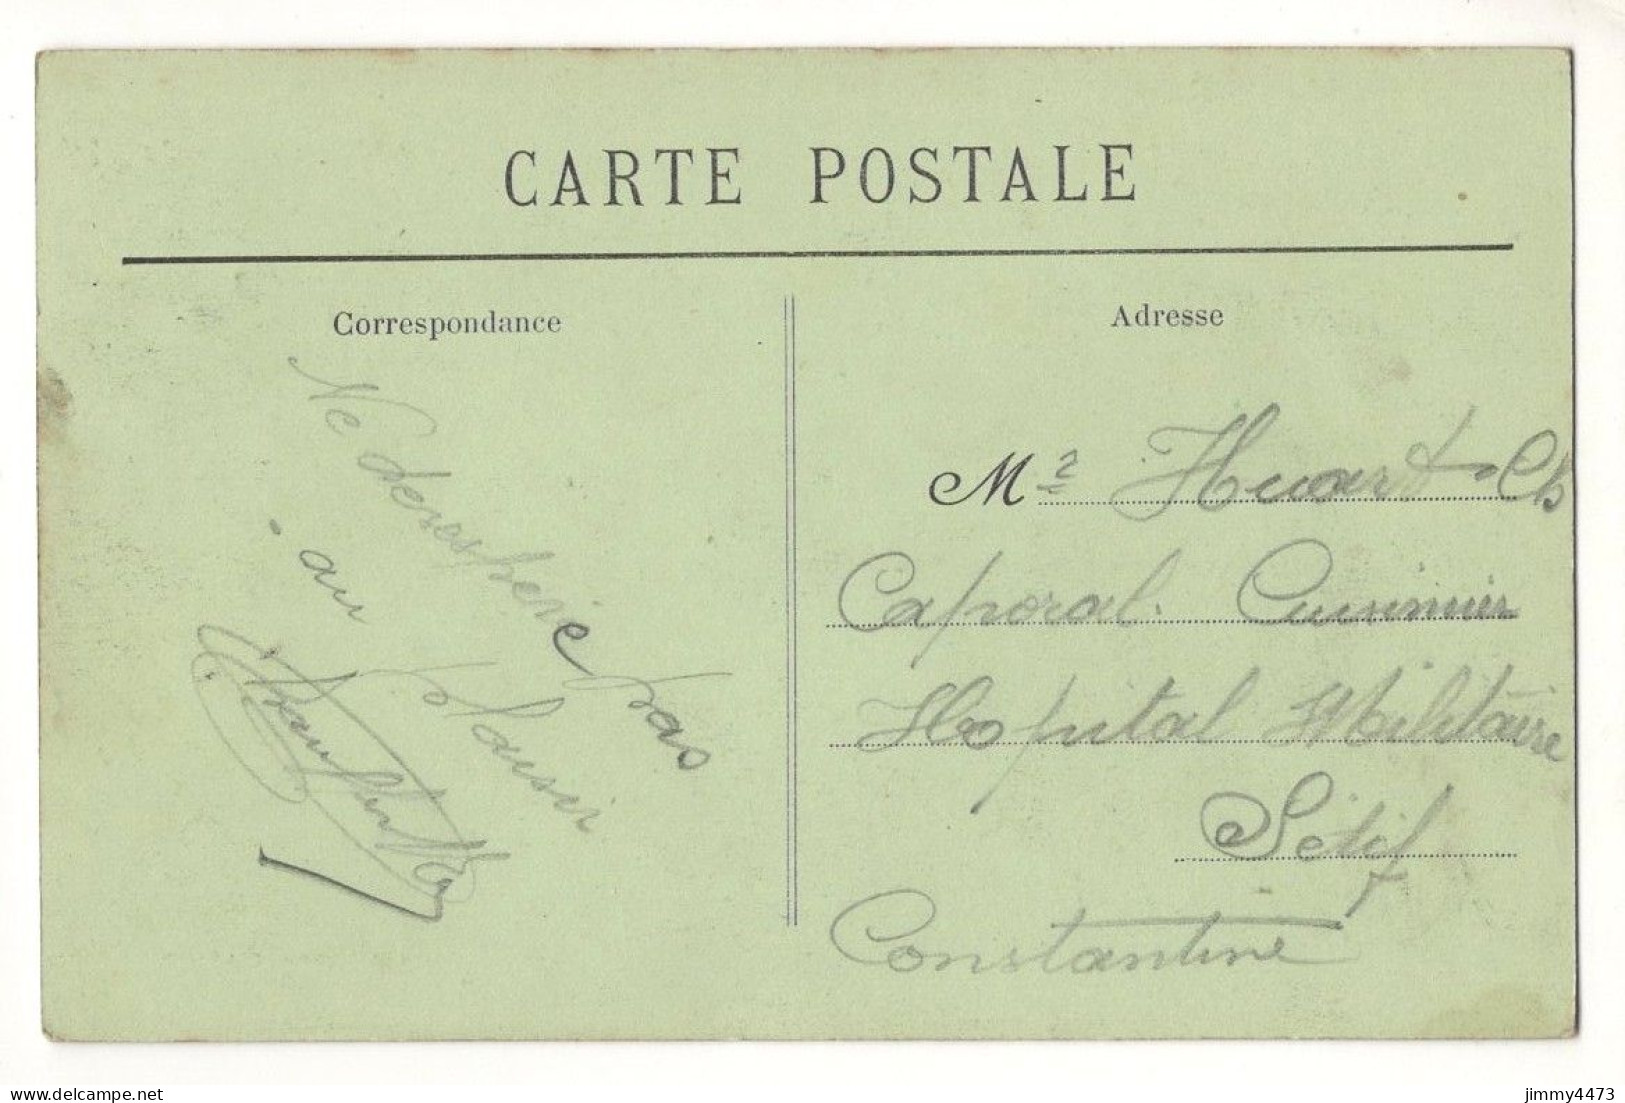 CARTE POSTALE
Correspondance
Ne desespere pas
au plaisir
Adresse
Mr Huart Ch
Caporal. Cuisinier
Hopital Militaire
Sétif
Constantine
delcampe.net
jimmy4473